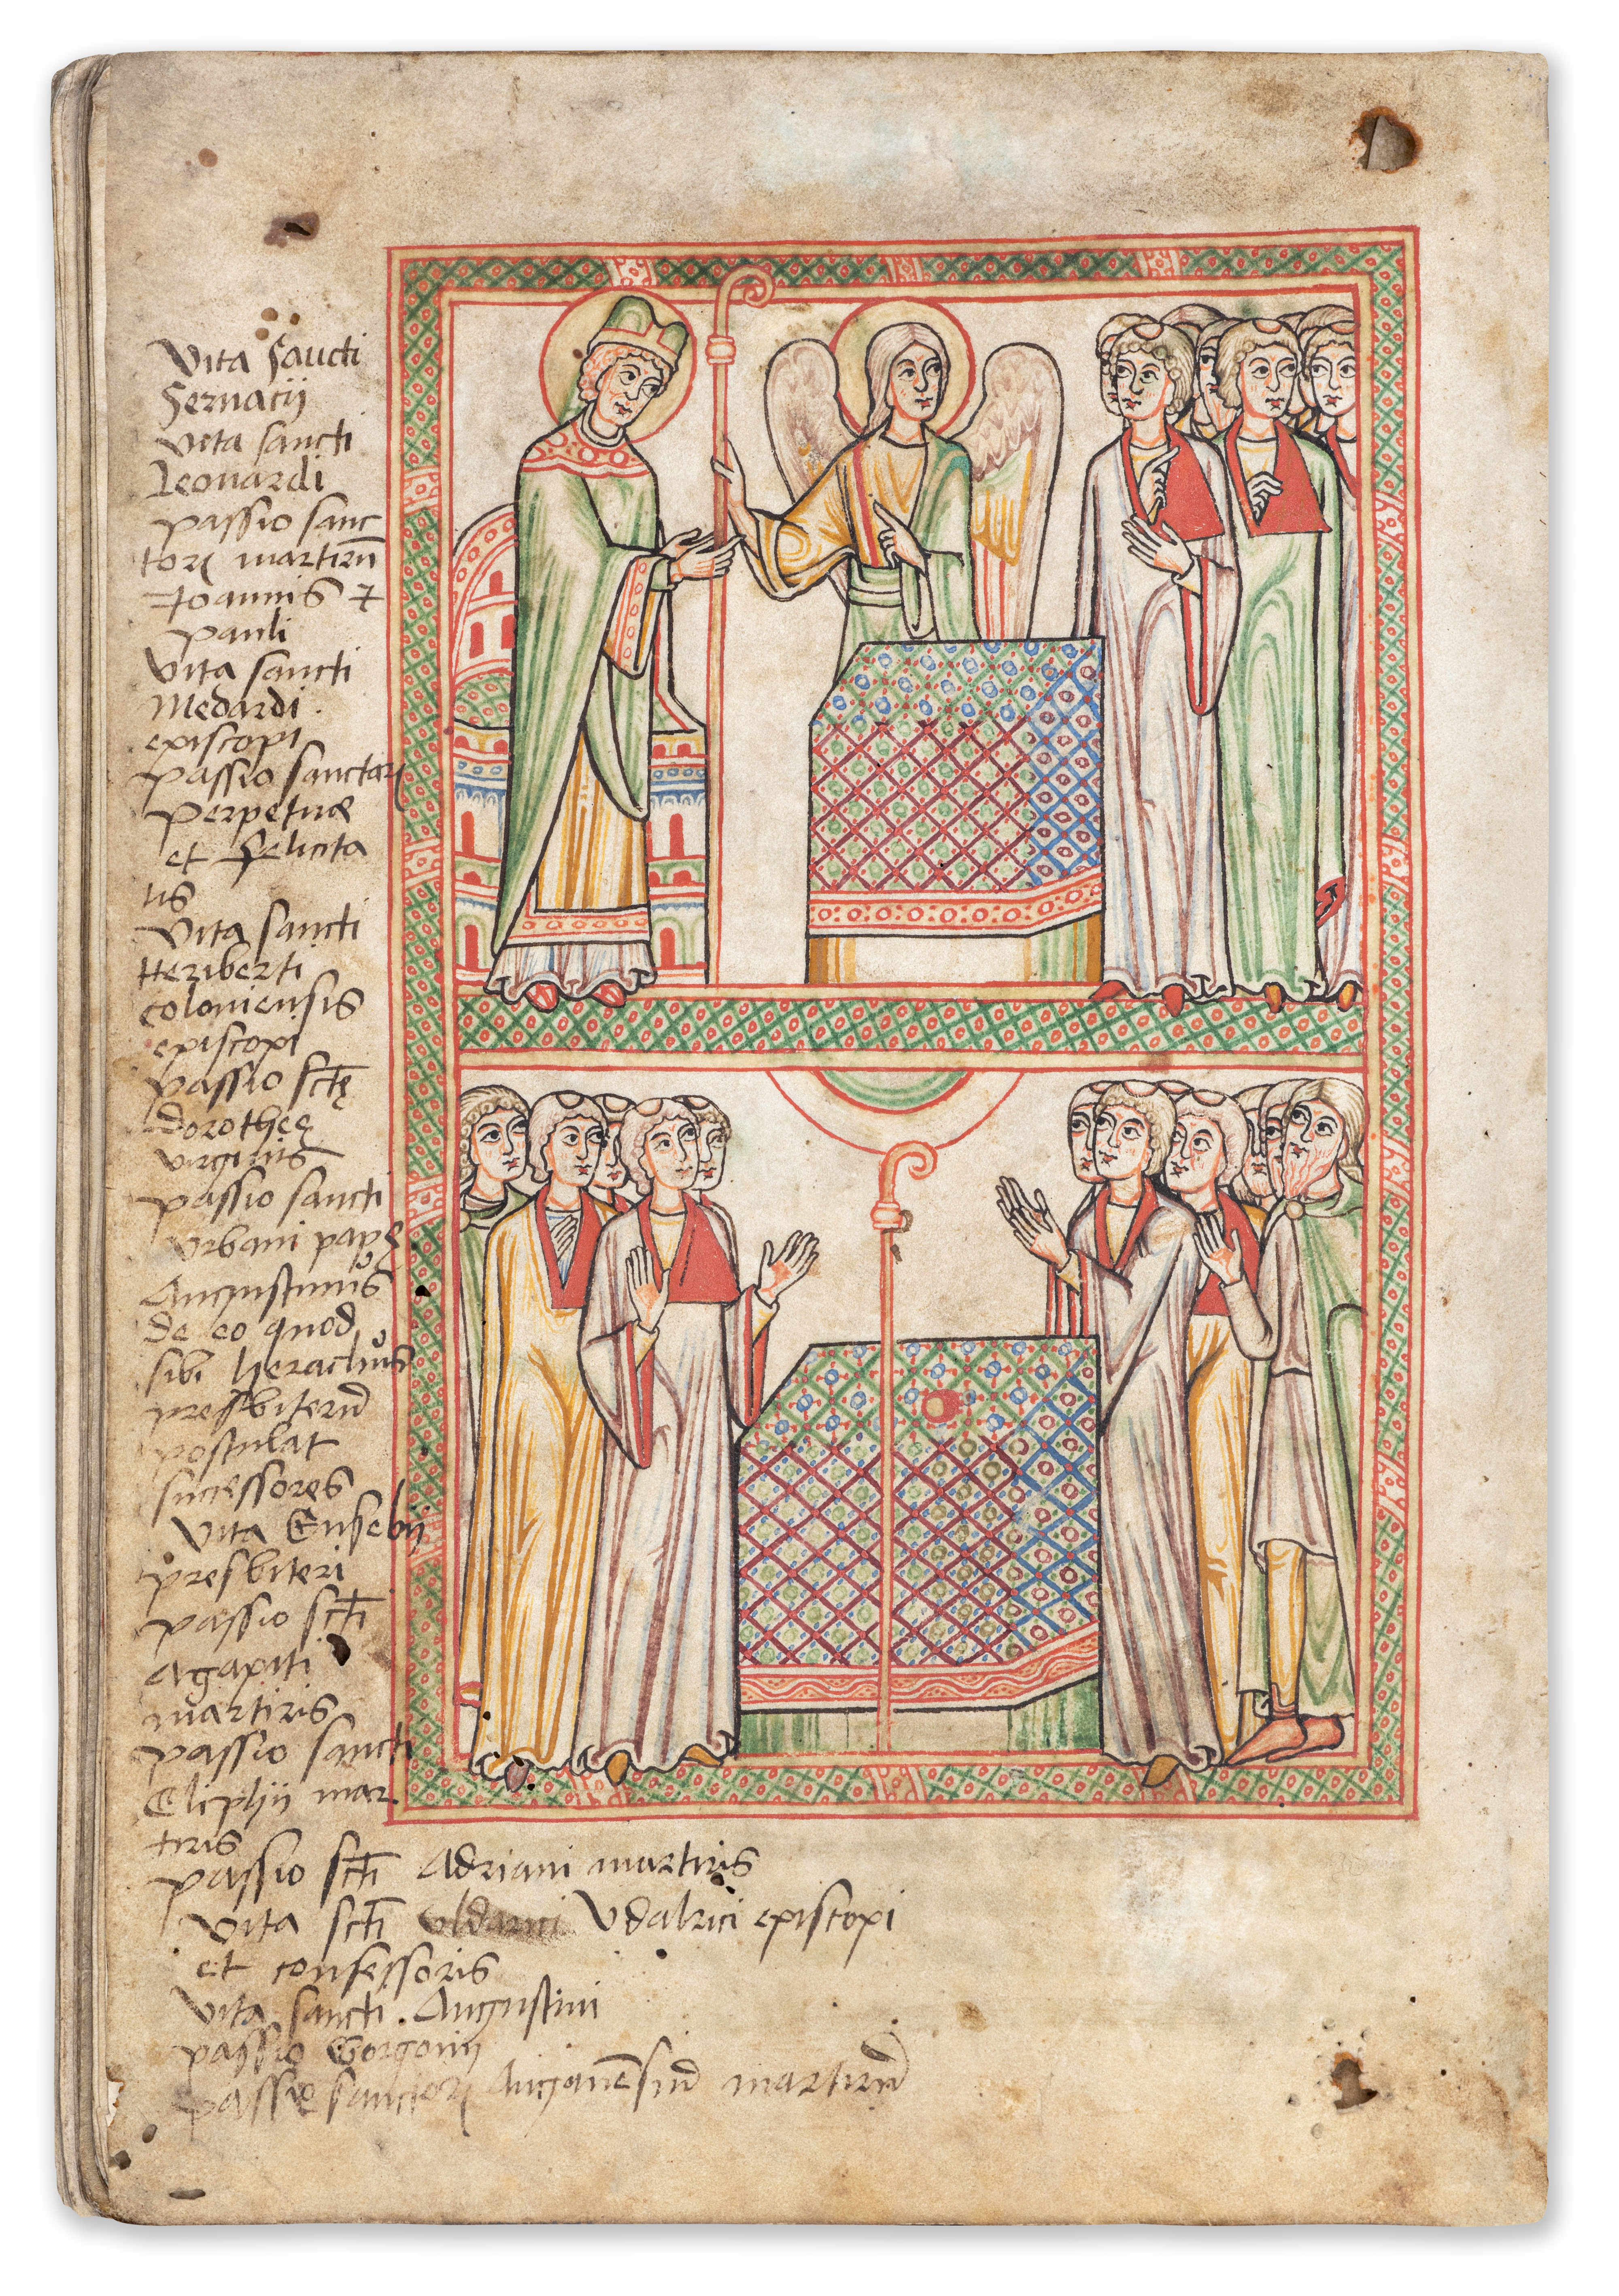 Vita Sancti
Servacij
Vita sancti
Leonardi
passio sanc
torꝝ martirū
Joannis ⁊
pauli
Vita sancti
Medardi
episcopi
passio sanctarꝝ
perpetuæ
et Felicita
tis
Vita sancti
Heriberti
coloniensis
episcopi
passio sctę
dorotheę
virginis
passio sancti
Vrbani papę
Augustinus
de eo quod
sibi Heraclius
presbiterū
postulat
successores
Vita Eusebij
presbiteri
passio scti
Agapiti
martiris
passio sancti
Eliphij mar
tiris
passio scti Adriani martiris
Vita scti Vdalrici episcopi
et confessoris
Vita sancti Augustini
passio Gorgonij
passio sanctorꝝ martirū